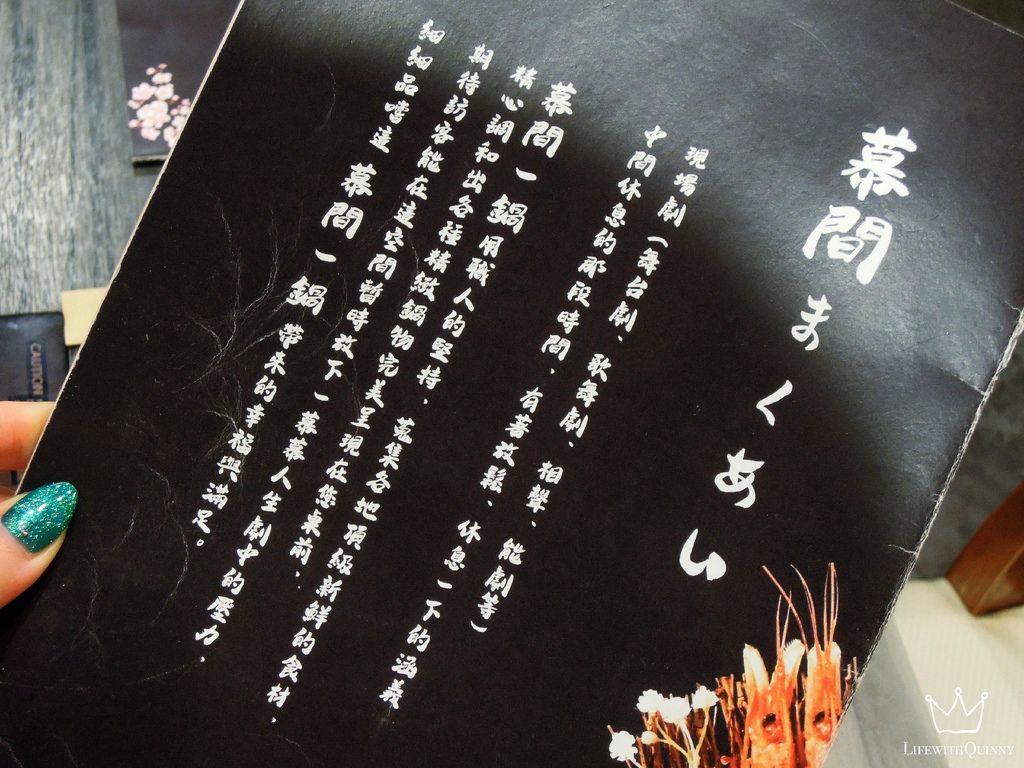 幕間まくあい
現場劇(舞台劇、歌舞劇、相聲、能劇等)
中間休息的那段時間，有著放鬆、休息一下的涵義
幕間一鍋用職人的堅持，蒐集各地頂級新鮮的食材，
精心調和出各種精緻鍋物完美呈現在您桌前，
期待訪客能在這空間暫時放下一幕幕人生劇中的壓力，
細細品嚐這幕間一鍋帶來的幸福與滿足。
CAUTION
LIFEWITHQUINNY